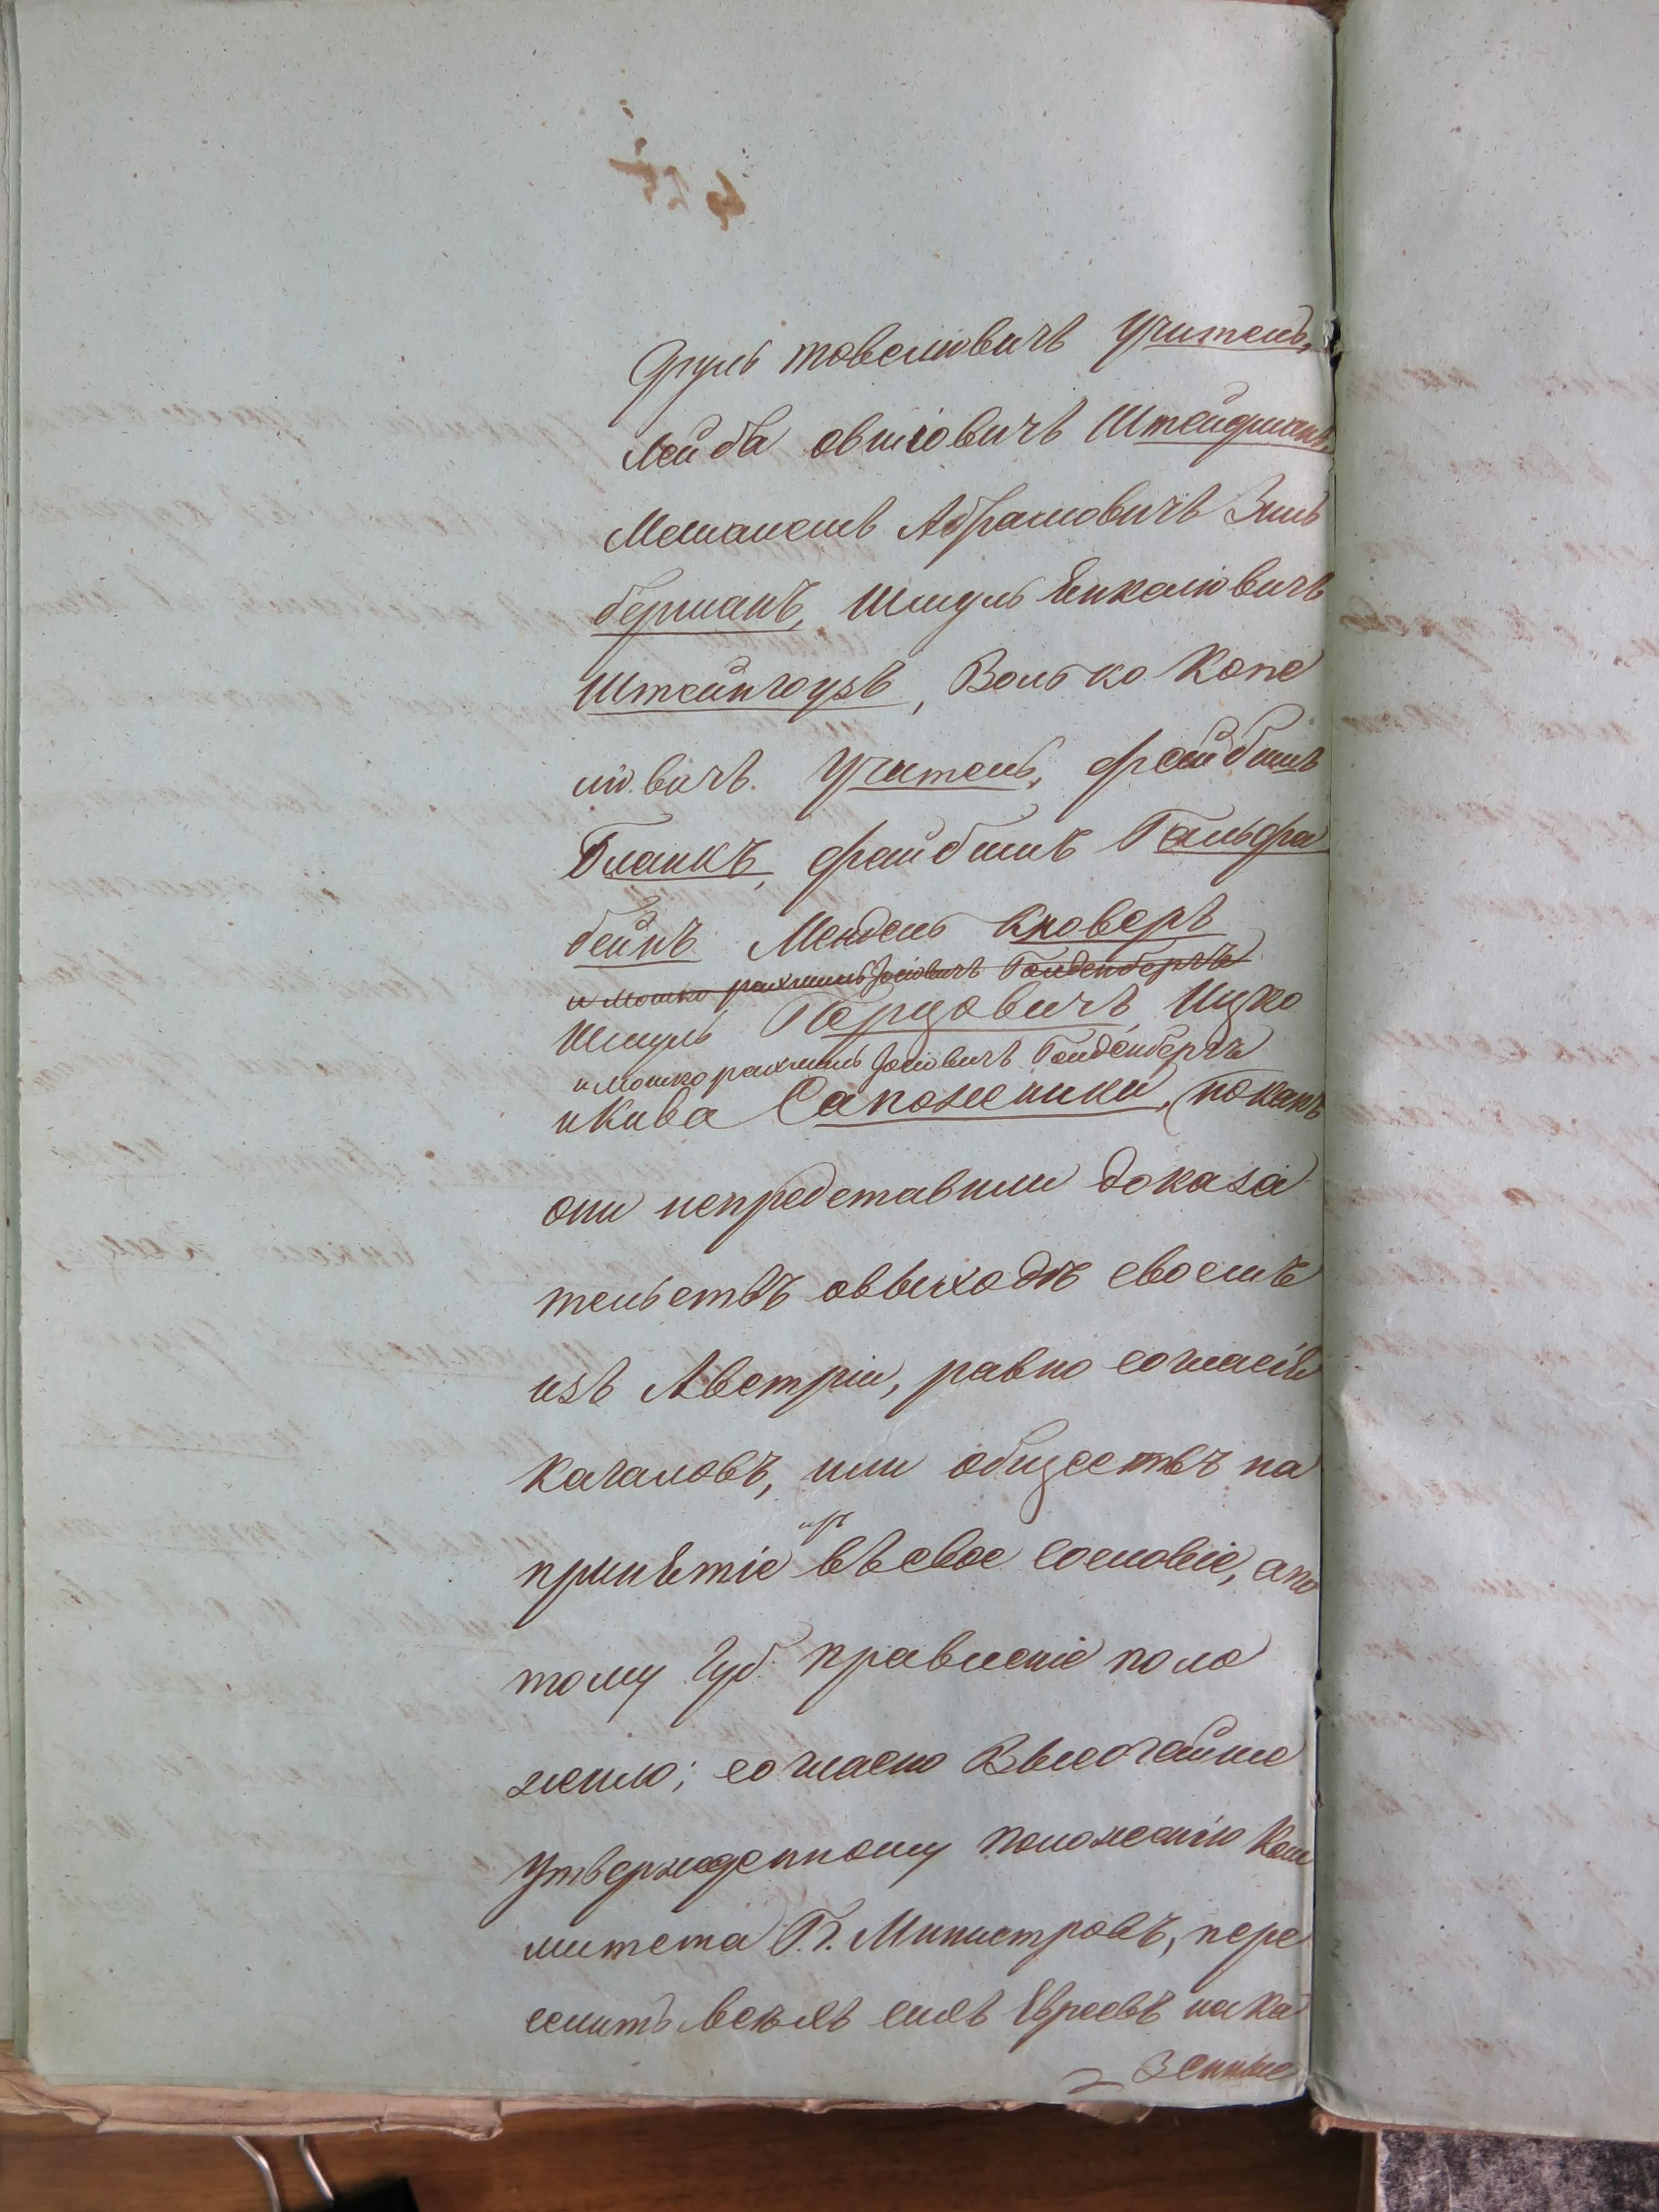 Сруль товелиовичъ Учитель,
Лейба овшиовичъ Штейфманъ,
Мешалемъ Абрамовичъ Зиль
берманъ, Шмуль Янкелиовичъ
Штейнгоузъ, Волько Копе
лiовичъ. Учитель, фейбишъ
Бланкъ, файбишъ Гальфа
бейнъ Мендель Кноверъ
и Мошко рахмиль Іосіовичъ Голденбергъ
Шмуль Перцовичъ, Ицко
и Мошко рахмиль Іосіовичъ Голденбергъ
и Кива Сапожники,
они непредставили доказа
тельствъ овыходѣ своемъ
изъ Австріи, равно согласія
кагаловъ, или обществъ на
принятіе ихъ въ свое сословіе, апо
тому Губ. правленіе поло
жило; согласно Высочайше
утвержденному положенію Ком
митета Г.г. Министровъ, пере
селить всѣхъ сихъ Евреевъ на ка
зенные